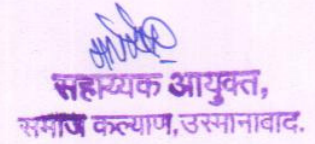 सहाय्यक आयुक्त,
समाज कल्याण, उस्मानाबाद.